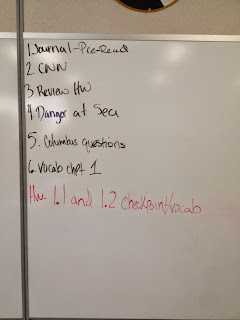 1. Journal-Pre-Read
2. CNN
3 Review HW
4. Danger at Sea
5. Columbus questions
6. Vocab chpt 1
Hw 1.1 and 1.2 checkpoint/vocab